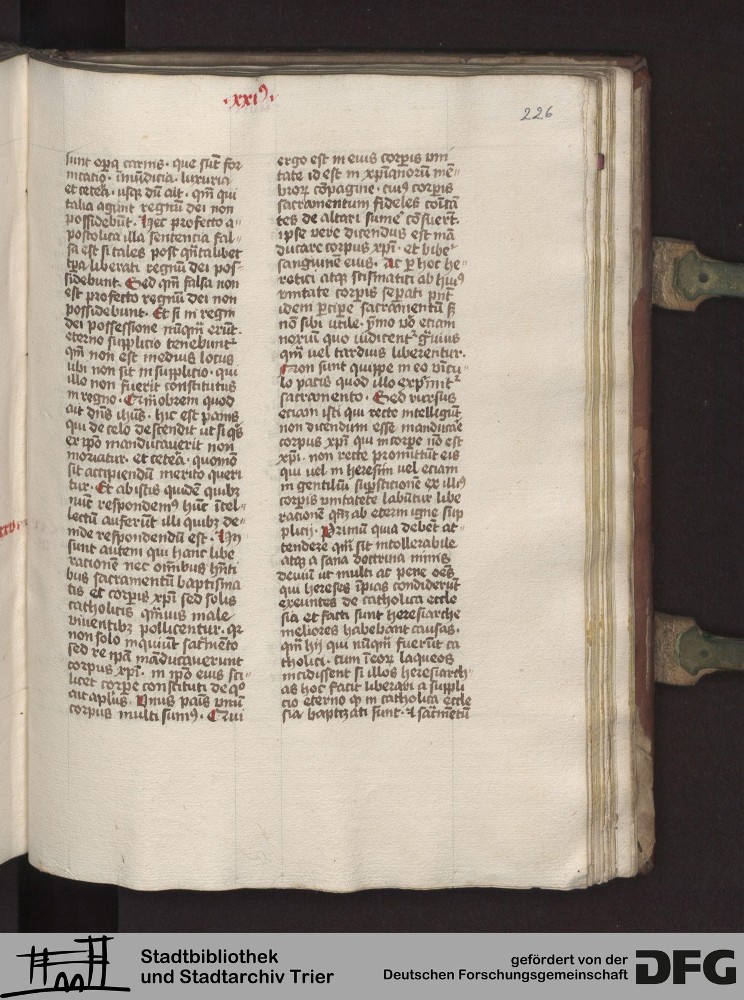 ·xxiꝰ·
226
sunt oꝑa carnis· que sūt for
nicatio· īmūdicia· luxuria
et ceteᷓa· usqꝫ dū ait· qm̄ qui
talia agunt regnū dei non
possidebūt· Hec profecto a⸗
postolica illa sententia fal⸗
sa est si tales post qn̄talibet
tꝑa liberati regnū dei pos⸗
sidebunt· Sed qm̄ falsa non
est profecto regnū dei non
possidebunt· Et si in regni
dei possessione nūqm̄ erūt·
eterno supplicio tenebunt᷑
qm̄ non est medius locus
ubi non sit in supplicio· qui
illo non fuerit constitutus
in regno· Quāobrem quod
ait dn̄s ihūs· hic est panis
qui de celo descendit ut si qͥs
ex ip̄o manducauerit non
moriatur· et ceteᷓa· quomō
sit accipiendū merito queri
tur· Et ab istis quidē quibꝫ
nūc respondemꝰ hūc ītel⸗
lectū auferūt illi quibꝫ de⸗
inde respondendū est· Hij
sunt autem qui hanc libe
rationē nec omibus hn̄ti
bus sacramentū baptisma
tis et corꝑis xp̄i sed solis
catholicis qm̄uis male
viuentibꝫ pollicentur· qꝛ
non solo inquiunt sacᷓmēto
sed re ip̄a māducauerunt
corpus xp̄i· in ip̄o eius sci⸗
licet corꝑe constituti de qͦ
ait aplūs· Vnus pāis vnū
corpus multi sumꝰ· Qui
ergo est in eius corꝑis vni
tate id est in xp̄ianorū mē⸗
brorꝝ cōpagine· cuiꝰ corꝑis
sacramentum fideles cōīcā
tes de altari sume᷑ cōsuerūt·
ipse vere dicendus est mā
ducare corpus xp̄i· et bibe᷑
sanguinē eius· Ac ꝑ hoc he⸗
retici atqꝫ scismatici ab huiꝰ
vnitate corꝑis seꝑati pn̄t
idem ꝑcipe sacramentū sꝫ
nō sibi utile· ymo vͦo etiam
noxiū quo iudicent᷑ gͣuius
qm̄ vel tardius liberentur·
Non sunt quippe in eo vīcu⸗
lo pacis quod illo exprimit᷑
sacramento· Sed rursus
eciam isti qui recte intelligūt
non dicendum esse manducaᷓe
corpus xp̄i qui in corꝑe nō est
xp̄i· non recte promittūt eis
qui uel in heresim uel eciam
in gentiliū suꝑsticionē ex illiꝰ
corꝑis vnitatete labūtur libe
racionē qn̄qꝫ ab eterni igne sup
plicij· Primū quia debēt at⸗
tendere qm̄ sit intollerabile
atqꝫ a sana doctrina nimis
deuiū ut multi ac pene oēs
qui hereses īpias condiderūt
exeuntes de catholica eccle
sia et facti sunt heresiarche
meliores habebant causas·
qm̄ hij qui nūqm̄ fuerūt ca
tholici· cum ī eorꝝ laqueos
incidissent si illos heresiarch⸗
as hoc facit liberari a suppli
cio eterno qꝫ in catholica eccle
sia baptizati sunt· ⁊ sacᷓmētū
Stadtbibliothek
und Stadtarchiv Trier
gefördert von der
Deutschen Forschungsgemeinschaft
DFG